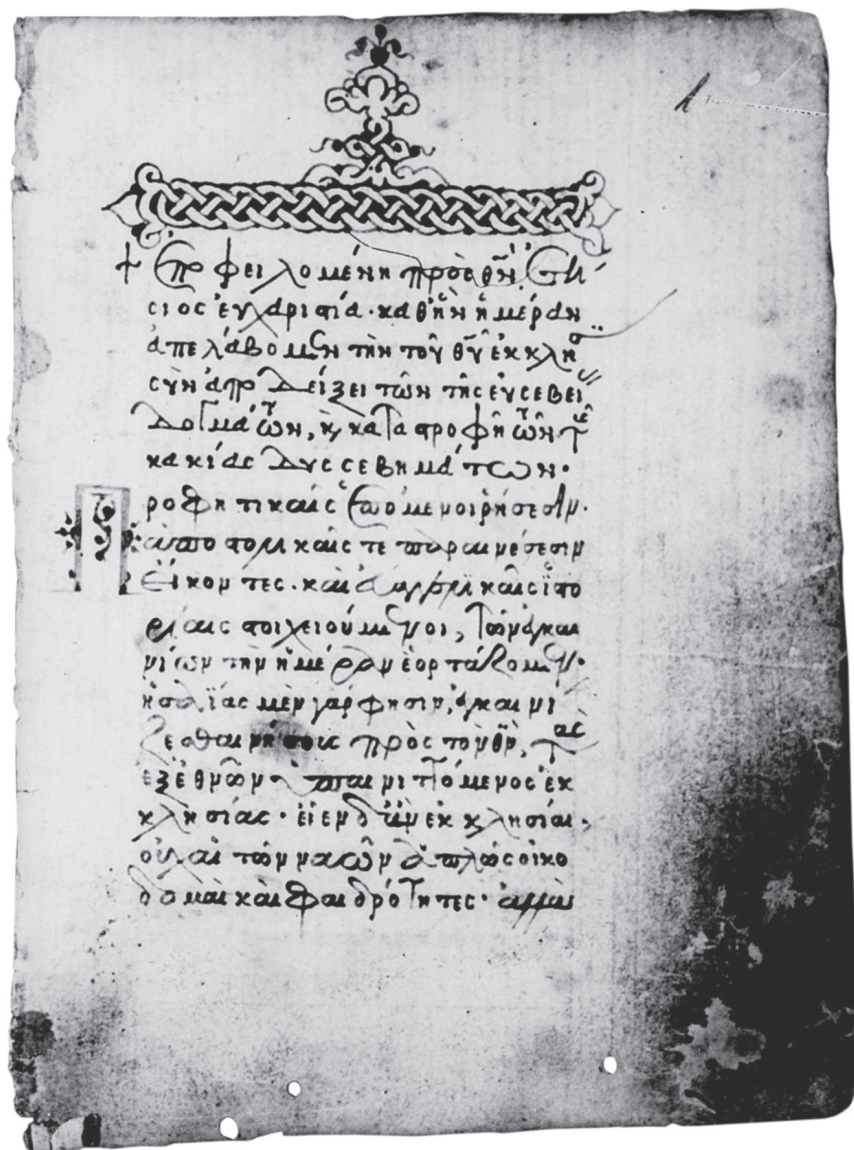 + Ἐποφειλομένη πρὸς θν̄ Ἐτή
σιος εὐχαριστία· καθ' ἣν ἡμέραν
ἀπελάβομεν τὴν τοῦ θῡ ἐκκλησ
σὺν ἀποδείξει τῶν τῆς εὐσεβεί
δογμάτων, κ καταστροφῆ τῶν τῆς
κακίας δυσσεβημάτων.
Προφητικαῖς ἑπόμενοι ῥήσεσιν·
ἀποστολικαῖς τε παραινέσεσιν
εἴκοντες· καὶ εὐαγγελικαῖς ἱστο
ρίαις στοιχειούμενοι, τῶν ἐγκαι
νίων τὴν ἡμέραν ἑορτάζομεν·
ἡσαΐας μὲν γάρ φησιν, ἐγκαινί
ζεσθαι νήσους πρὸς τὸν θν̄, τὰς
ἐξ ἐθνῶν ὑπαινιττόμενος ἐκ
κλησίας· εἶεν δ' ἂν ἐκκλησίαι,
οὐχ αἱ τῶν ναῶν ἁπλῶς οἰκο
δομαὶ καὶ φαιδρότητες· ἀλλὰ